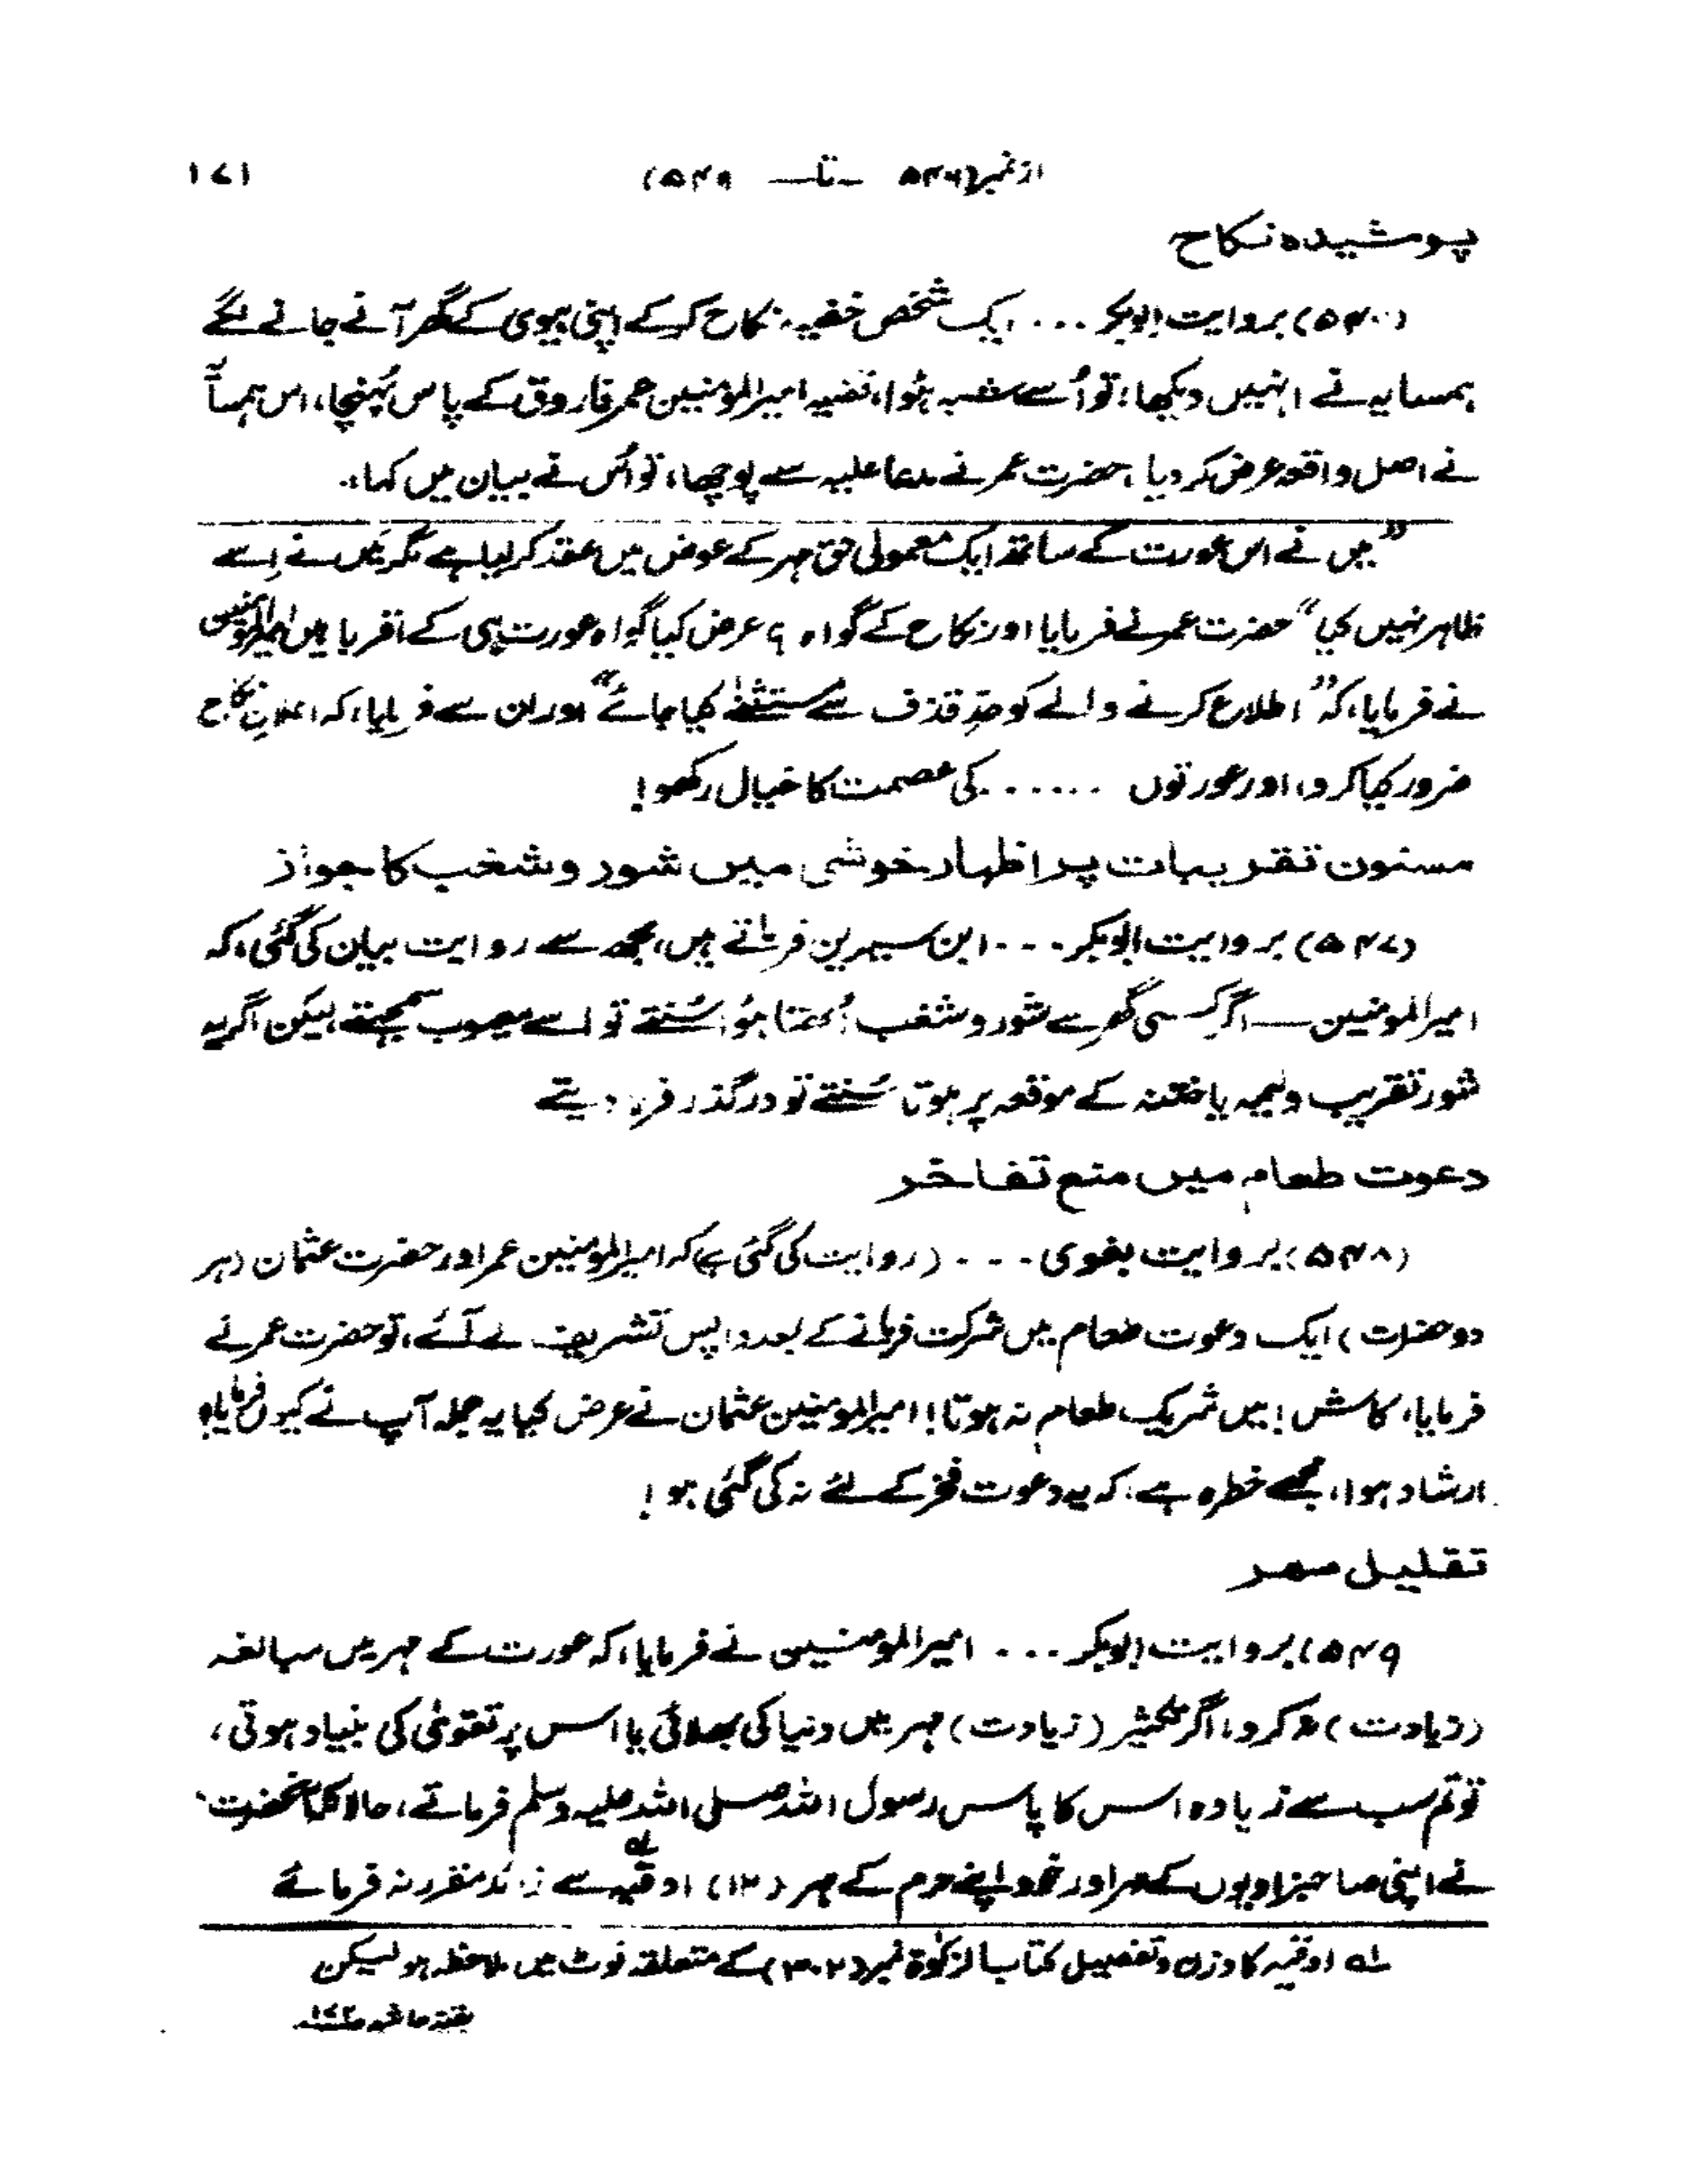 از نمبر (۵۴۶ — تا — ۵۴۹) ۱۷۱
پوشیدہ نکاح
(۵۴۶) بروایت ابوبکر ... ایک شخص خفیہ نکاح کر کے اپنی بیوی کے گھر آنے جانے لگے
ہمسایہ نے انہیں دیکھا، تو اُسے شبہ ہُوا، قضیہ امیرالمؤمنین عمر فاروق کے پاس پُہنچا، اس ہمسایہ
نے اصل واقعہ عرض کر دیا، حضرت عمر نے مدعا علیہ سے پوچھا، تو اُس نے بیان میں کہا،
”میں نے اس عورت کے ساتھ ایک معمولی حق مہر کے عوض میں عقد کر لیا ہے مگر میں نے اِسے
ظاہر نہیں کیا“ حضرت عمر نے فرمایا اور نکاح کے گواہ ؟ عرض کیا گواہ عورت ہی کے اقربا ہیں امیرالمؤمنین
نے فرمایا، کہ ”اطلاع کرنے والے کو حدِ قذف سے مستثنٰے کیا جائے“ اور ان سے فرمایا، کہ اعلانِ نکاح
ضرور کیا کرو، اور عورتوں ...... کی عصمت کا خیال رکھو!
مسنون تقریبات پر اظہار خوشی میں شور و شغب کا جواز
(۵۴۷) بروایت ابوبکر ... ابن سیرین فرماتے ہیں، مجھ سے روایت بیان کی گئی، کہ
امیرالمومنین — اگر کسی گھر سے شور و شغب اُٹھتا ہُوا سُنتے تو اسے معیوب سمجھتے، لیکن اگر یہ
شور تقریب ولیمہ یا ختنہ کے موقعہ پر ہوتا سُنتے تو درگذر فرما دیتے
دعوت طعام میں منع تفاخر
(۵۴۸) بروایت بغوی ... (روایت کی گئی ہے کہ امیرالمومنین عمر اور حضرت عثمان (ہر
دو حضرات) ایک دعوت طعام میں شرکت فرمانے کے بعد واپس تشریف لے آئے، تو حضرت عمر نے
فرمایا، کاش! میں شریک طعام نہ ہوتا! امیرالمومنین عثمان نے عرض کیا یہ جملہ آپ نے کیوں فرمایا؟
ارشاد ہوا، مجھے خطرہ ہے، کہ یہ دعوت فخر کے لئے نہ کی گئی ہو!
تقلیل مہر
(۵۴۹) بروایت ابوبکر ... امیرالمومنین نے فرمایا، کہ عورت کے مہر میں مبالغہ
(زیادت) نہ کرو، اگر تکثیر (زیادت) مہر میں دنیا کی بھلائی یا اس پر تقویٰ کی بنیاد ہوتی،
تو تم سب سے زیادہ اس کا پاس رسول اللہ صلی اللہ علیہ وسلم فرماتے، حالانکہ آنحضرت
نے اپنی صاحبزادیوں کے مہر اور خود اپنے حرم کے مہر (۱۲) اوقیہ لہ سے زائد مقرر نہ فرمائے
لہ اوقیہ کا وزن و تفصیل کتاب الزکوٰۃ نمبر (۳۰۲) کے متعلقہ نوٹ میں ملاحظہ ہو لیکن
بقیہ حاشیہ ص۱۷۲